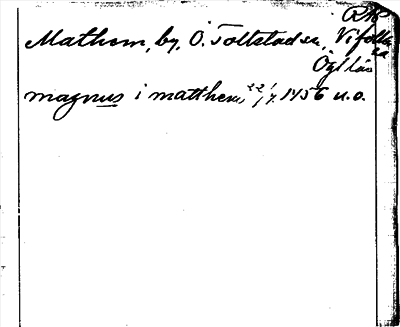 RA
Mathem, by, Ö. Tollstad sn, Vifolka
Ög län
magnus i matthem, 22/7 1456 u.o.